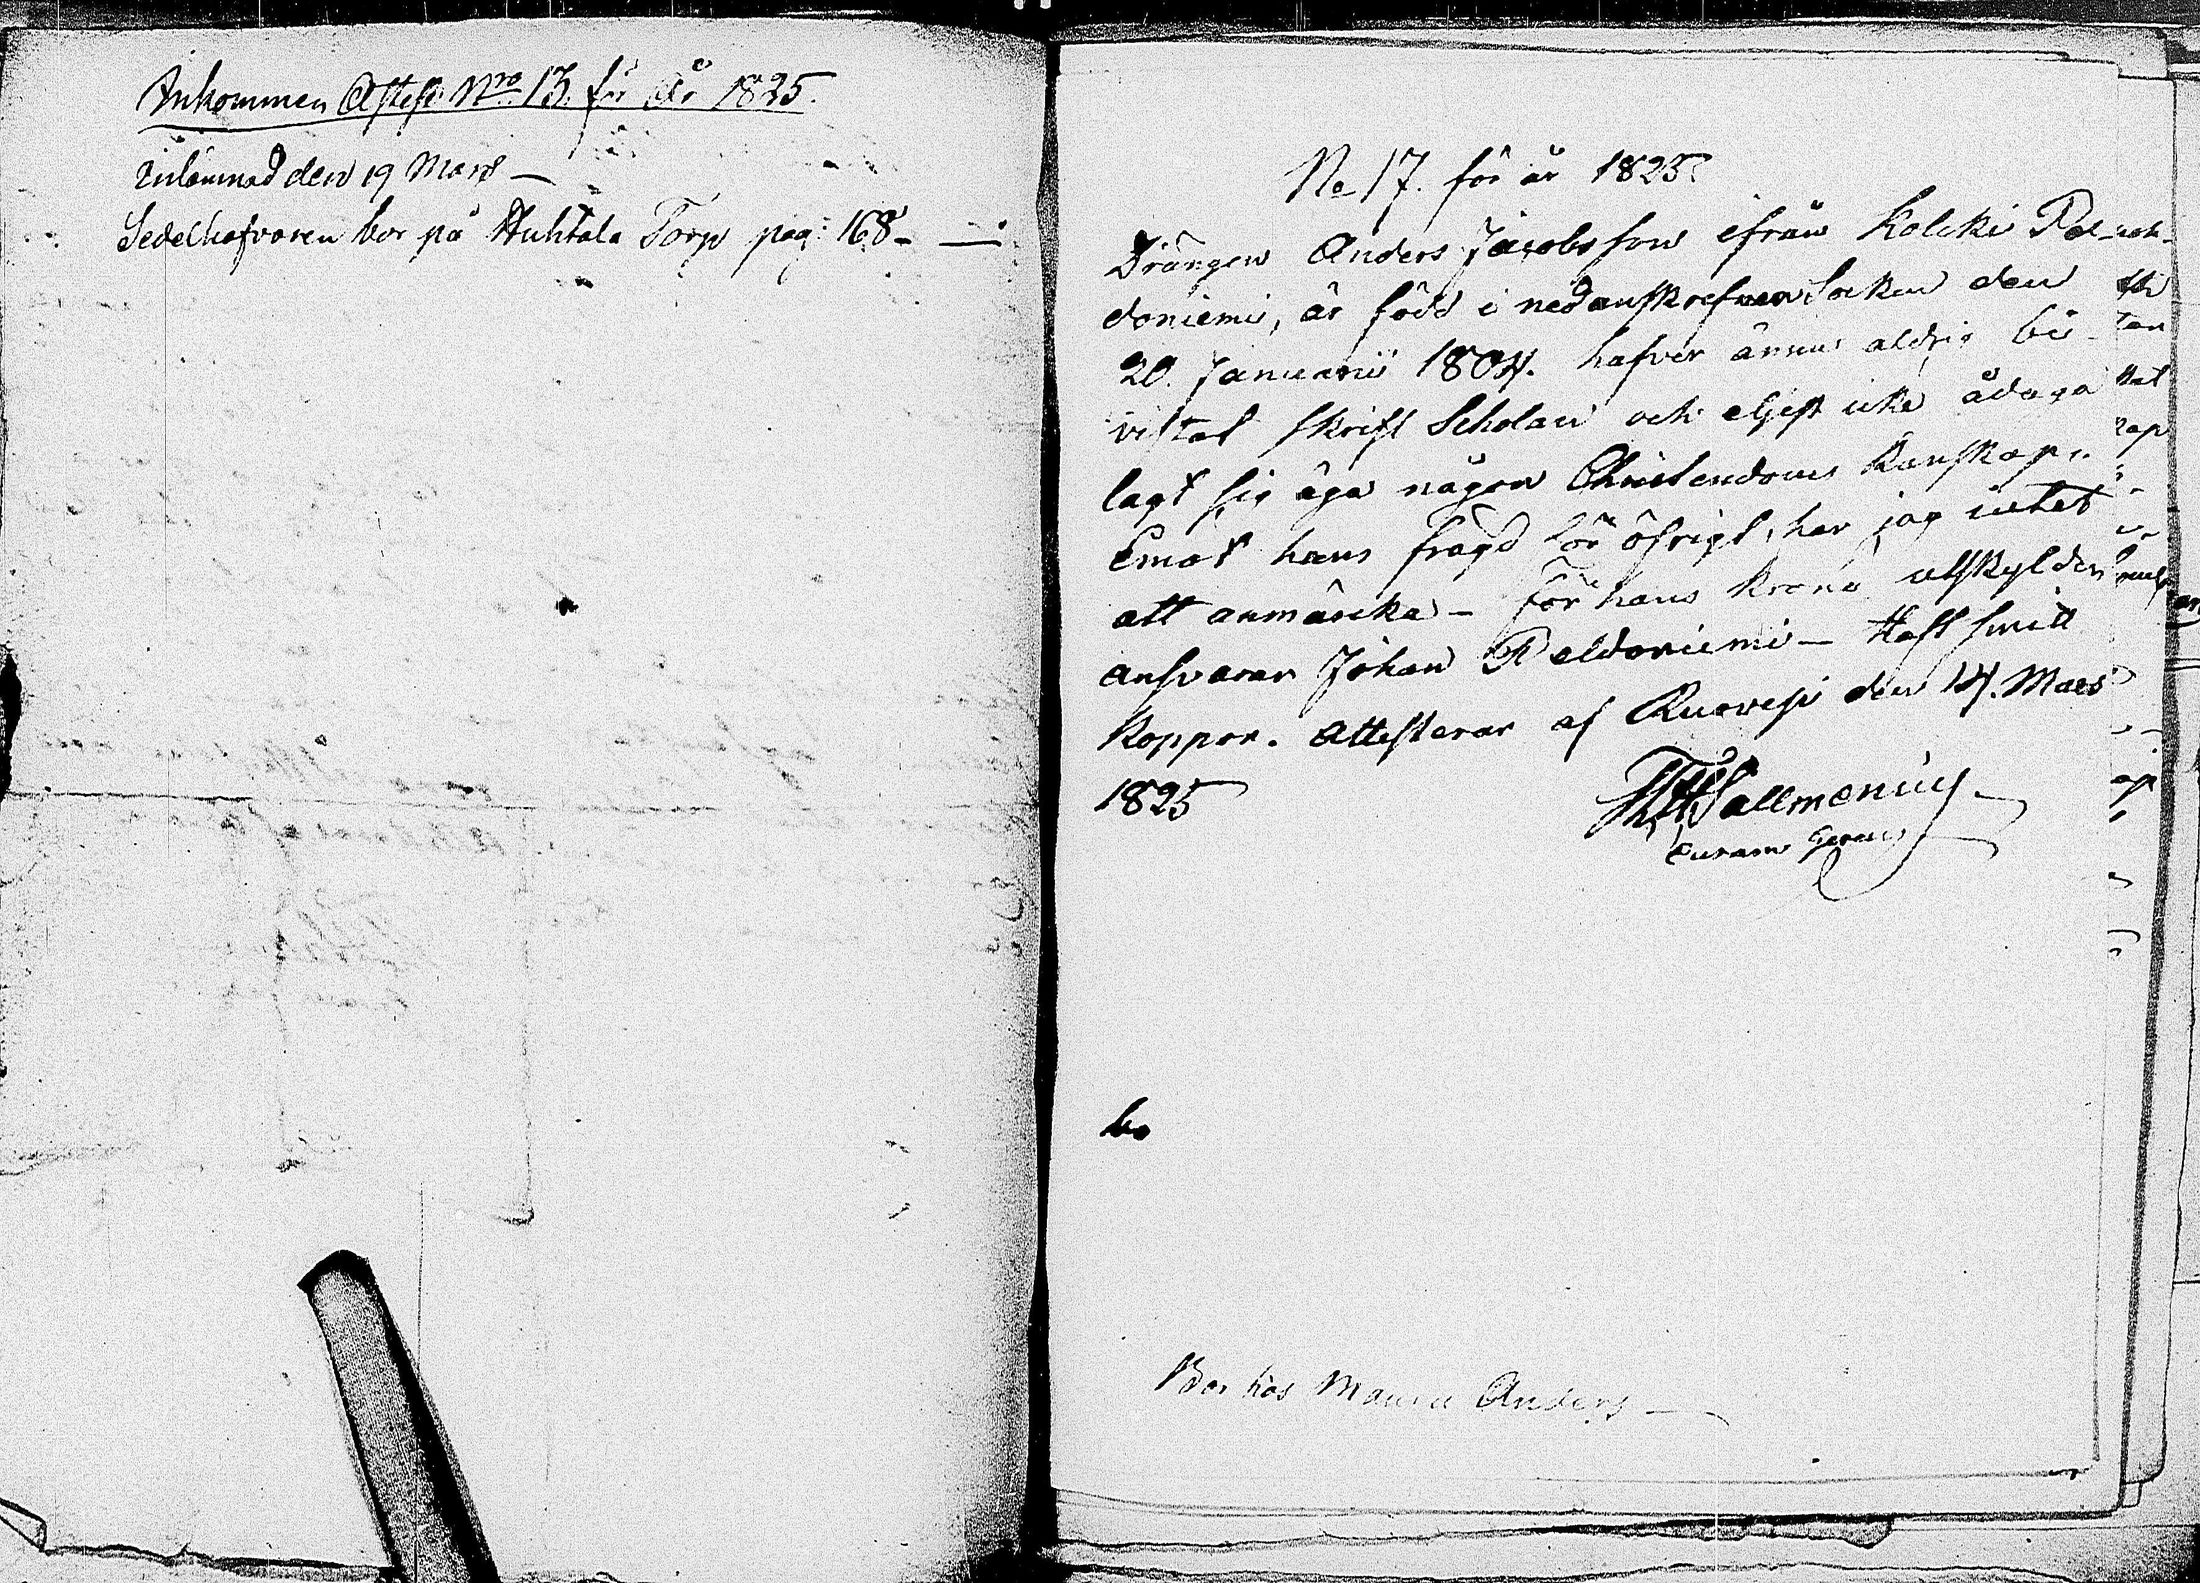 Inkommen Attest Nro 13. för År 1825.
Inlämnad den 19 Mars —
Sedelhafvaren bor på Huhtala Torp pag: 168 —
No 17. för år 1825.
Drängen Anders Jacobsson ifrån Kolcki Pel-
doniemi, är född i nedanskrefven Socken den
20. Januarii 1804. hafver ännu aldrig bi-
vistat skrift Scholan och eljest icke ådaga
lagt sig äga någon Christendoms kunskap.
Emot hans frägd för öfrigt, har jag intet
att anmärcka — för hans krono utskylder
ansvarar Johan Peldoniemi — Haft
koppor. Attesterar af Ruovesi den 14. Mars
1825
Sallmenius
curam gerens
bo
Bor hos Anders —